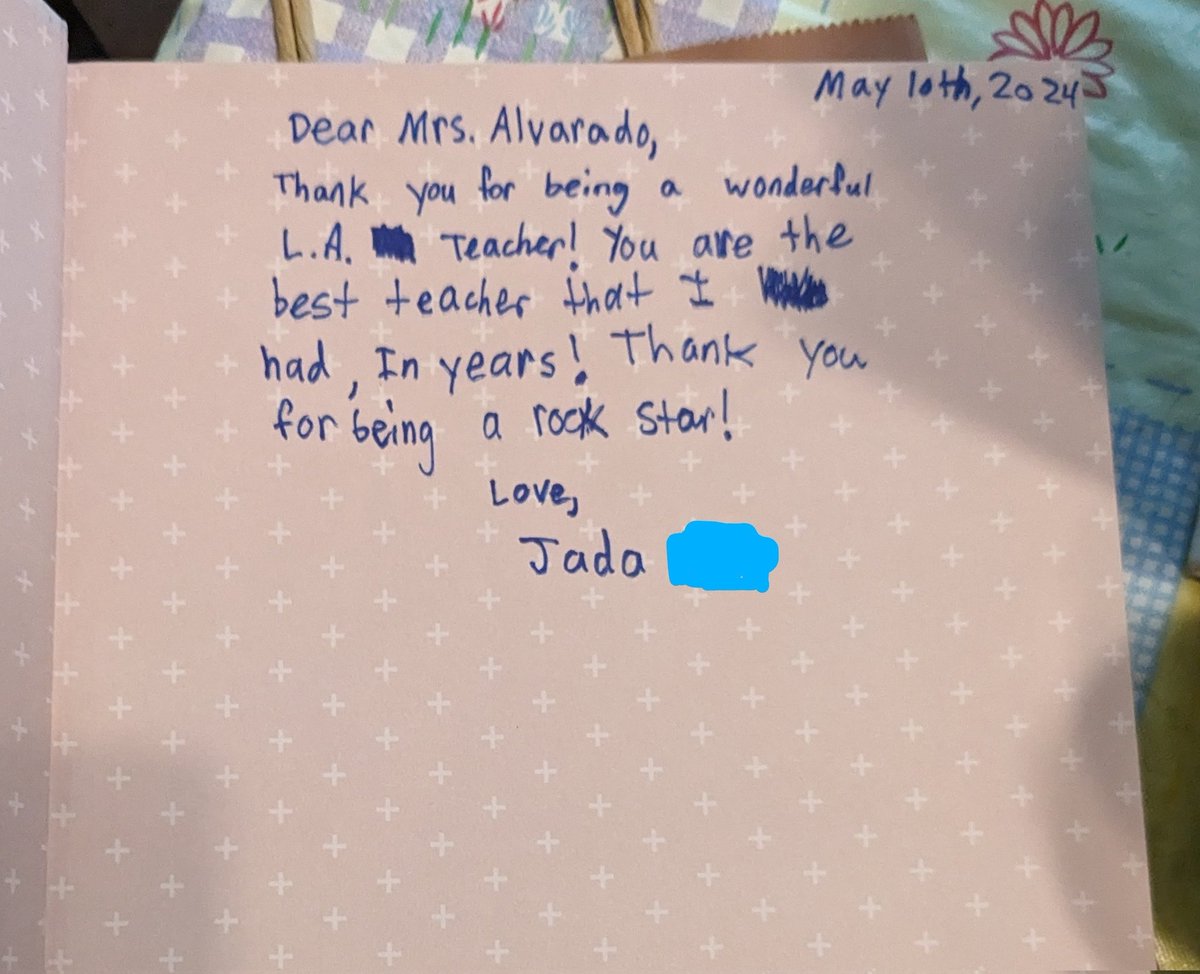 May 10th, 2024
Dear Mrs. Alvarado,
Thank you for being a wonderful
L.A. Teacher! You are the
best teacher that I
had, In years! Thank you
for being a rock star!
Love,
Jada